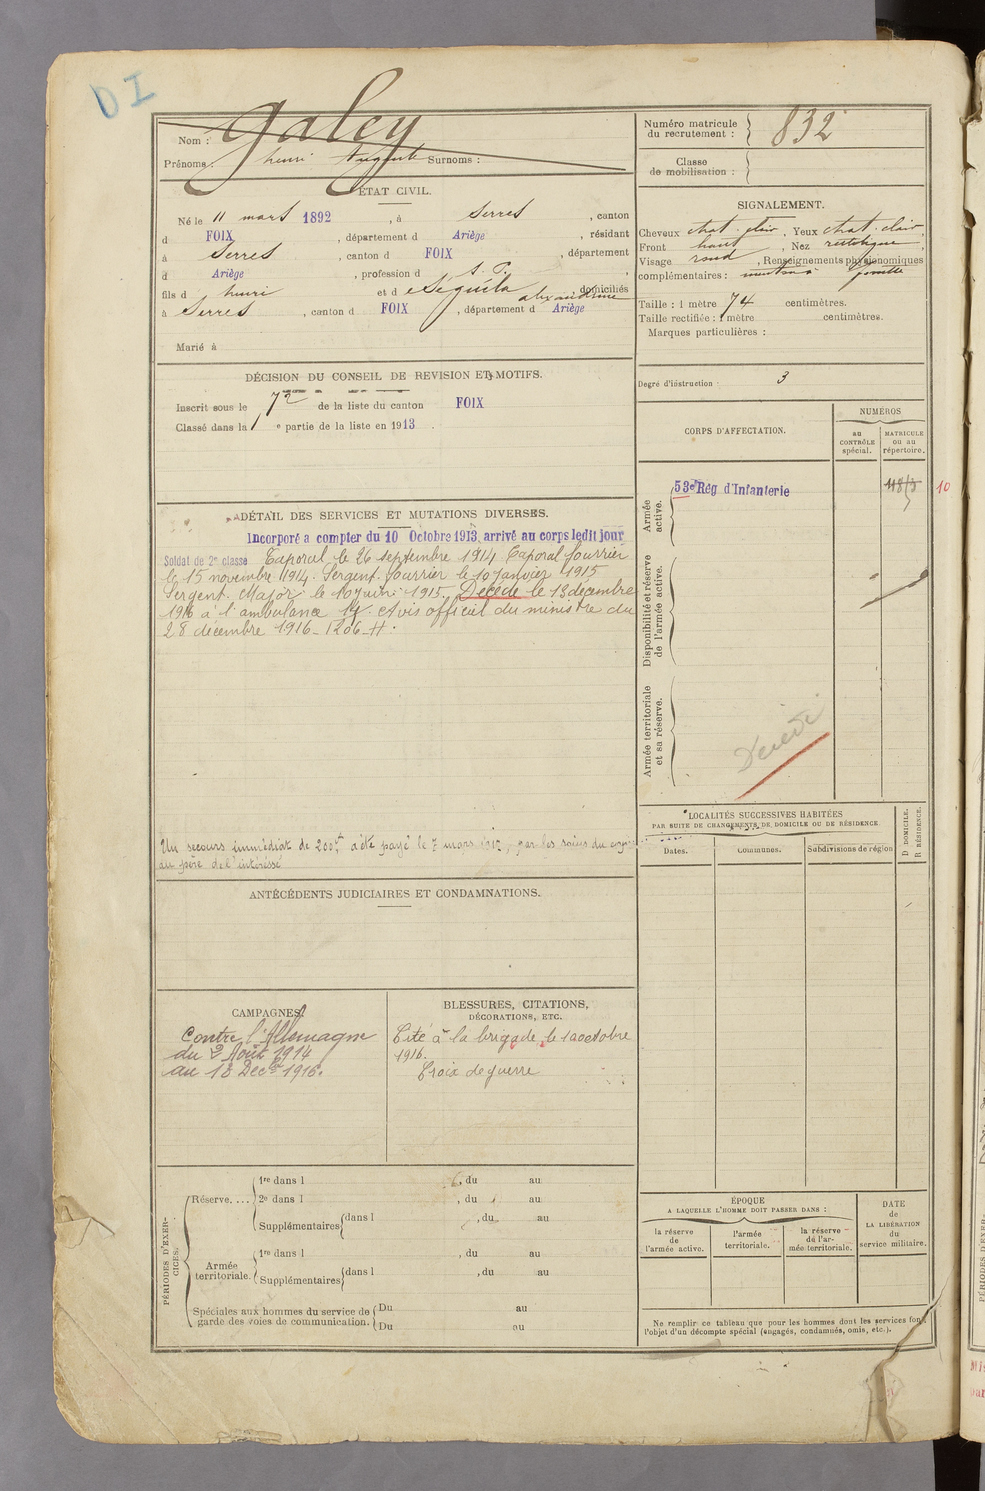 D I
Nom : Galey
Prénoms : henri Auguste Surnoms :
ÉTAT CIVIL.
Né le 11 mars 1892, à Serres, canton
d FOIX, département d Ariège, résidant
à Serres, canton d FOIX, département
d Ariège, profession d S. P.,
fils d henri et de Seguela alexandrine domiciliés
à Serres, canton d FOIX, département d Ariège
Marié à
DÉCISION DU CONSEIL DE REVISION ET MOTIFS.
Inscrit sous le 72 de la liste du canton FOIX
Classé dans la 1e partie de la liste en 1913.
DÉTAIL DES SERVICES ET MUTATIONS DIVERSES.
Incorporé a compter du 10 Octobre 1913, arrivé au corps ledit jour
Soldat de 2e classe Caporal le 26 septembre 1914 Caporal fourrier
le 15 novembre 1914. Sergent. fourrier le 10 janvier 1915
Sergent. Major le 10 juin 1915. Décédé le 18 décembre
1916 à l'ambulance Avis officiel du ministre du
28 décembre 1916_ 1206_H.
Un secours immédiat de 200f a été payé le 7 mars 1917, par les soins du corps
au père de l'intéressé
ANTÉCÉDENTS JUDICIAIRES ET CONDAMNATIONS.
CAMPAGNES.
Contre l'Allemagne
du 2 Août 1914
au 18 Decbre 1916.
BLESSURES, CITATIONS,
DÉCORATIONS, ETC.
Cité à la brigade le 10 octobre
1916.
Croix de guerre
PÉRIODES D'EXERCICES.
Réserve.... 1re dans l , du au
2e dans l , du au
Supplémentaires dans l , du au
Armée territoriale. 1re dans l , du au
Supplémentaires dans l , du au
Spéciales aux hommes du service de Du au
garde des voies de communication. Du au
Numéro matricule
du recrutement : 832
Classe
de mobilisation :
SIGNALEMENT.
Cheveux chat. clair, Yeux chat. clair,
Front haut, Nez rectiligne,
Visage rond, Renseignements physionomiques
complémentaires : menton à fossette
Taille : 1 mètre 74 centimètres.
Taille rectifiée : 1 mètre centimètres.
Marques particulières :
Degré d'instruction 3
CORPS D'AFFECTATION.
NUMÉROS
au
CONTRÔLE
spécial.
MATRICULE
ou au
répertoire.
Armée
active.
53e Rég d'Infanterie
10
Disponibilité et réserve
de l'armée active.
Armée territoriale
et sa réserve.
Décédé
LOCALITÉS SUCCESSIVES HABITÉES
PAR SUITE DE CHANGEMENTS DE DOMICILE OU DE RÉSIDENCE.
Dates.
Communes.
Subdivisions de région
D DOMICILE.
R RÉSIDENCE.
ÉPOQUE
A LAQUELLE L'HOMME DOIT PASSER DANS :
la réserve
de
l'armée active.
l'armée
territoriale.
la réserve
de l'ar-
mée territoriale.
DATE
de
LA LIBÉRATION
du
service militaire.
Ne remplir ce tableau que pour les hommes dont les services font
l'objet d'un décompte spécial (engagés, condamnés, omis, etc.).